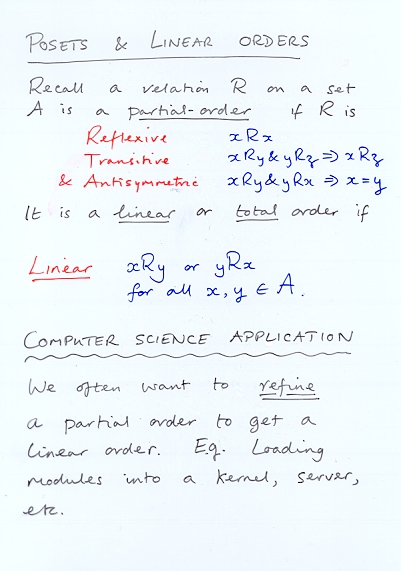 POSETS & LINEAR ORDERS
Recall a relation R on a set
A is a partial-order if R is
Reflexive xRx
Transitive xRy & yRz ⇒ xRz
& Antisymmetric xRy & yRx ⇒ x=y
It is a linear or total order if
Linear xRy or yRx
for all x, y ∈ A.
COMPUTER SCIENCE APPLICATION
We often want to refine
a partial order to get a
linear order. E.g. Loading
modules into a kernel, server,
etc.